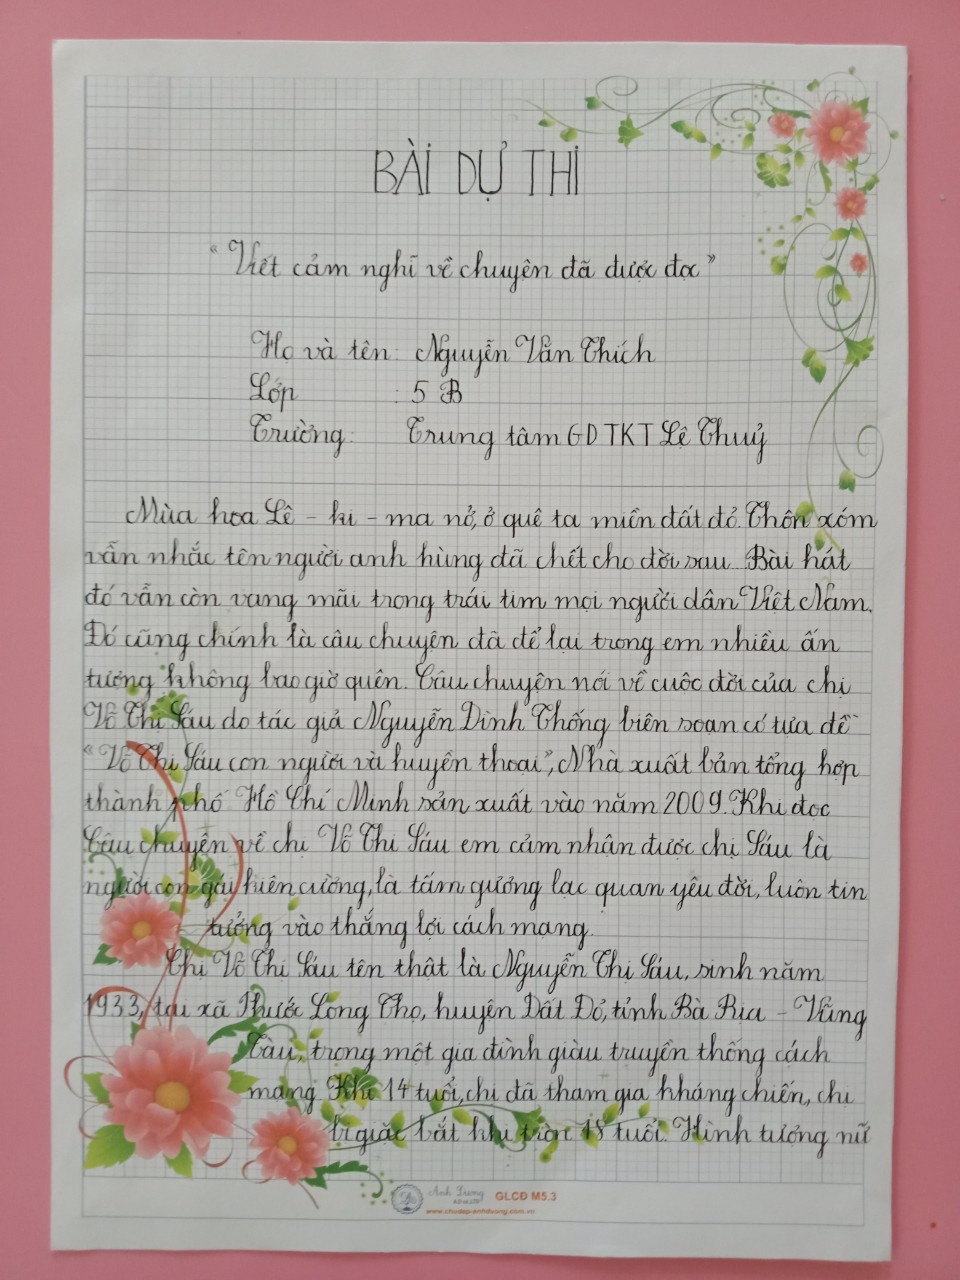 BÀI DỰ THI
"Viết cảm nghĩ về chuyện đã được đọc"
Họ và tên: Nguyễn Văn Thích
Lớp : 5 B
Trường: Trung tâm GDTKT Lệ Thuỷ
Mùa hoa Lê - ki - ma nở, ở quê ta miền đất đỏ. Thôn xóm
vẫn nhắc tên người anh hùng đã chết cho đời sau. Bài hát
đó vẫn còn vang mãi trong trái tim mọi người dân Việt Nam.
Đó cũng chính là câu chuyện đã để lại trong em nhiều ấn
tượng không bao giờ quên. Câu chuyện nói về cuộc đời của chị
Võ Thị Sáu do tác giả Nguyễn Đình Thống biên soạn có tựa đề
"Võ Thị Sáu con người và huyền thoại", Nhà xuất bản tổng hợp
thành phố Hồ Chí Minh sản xuất vào năm 2009. Khi đọc
Câu chuyện về chị Võ Thị Sáu em cảm nhận được chị Sáu là
người con gái kiên cường, là tấm gương lạc quan yêu đời, luôn tin
tưởng vào thắng lợi cách mạng.
Chị Võ Thị Sáu tên thật là Nguyễn Thị Sáu, sinh năm
1933, tại xã Phước Long Thọ, huyện Đất Đỏ, tỉnh Bà Rịa - Vũng
Tàu, trong một gia đình giàu truyền thống cách
mạng. Khi 14 tuổi, chị đã tham gia kháng chiến, chị
bị giặc bắt khi tròn 18 tuổi. Hình tượng nữ
Ánh Dương
GLCĐ M5.3
www.chudep-anhduong.com.vn